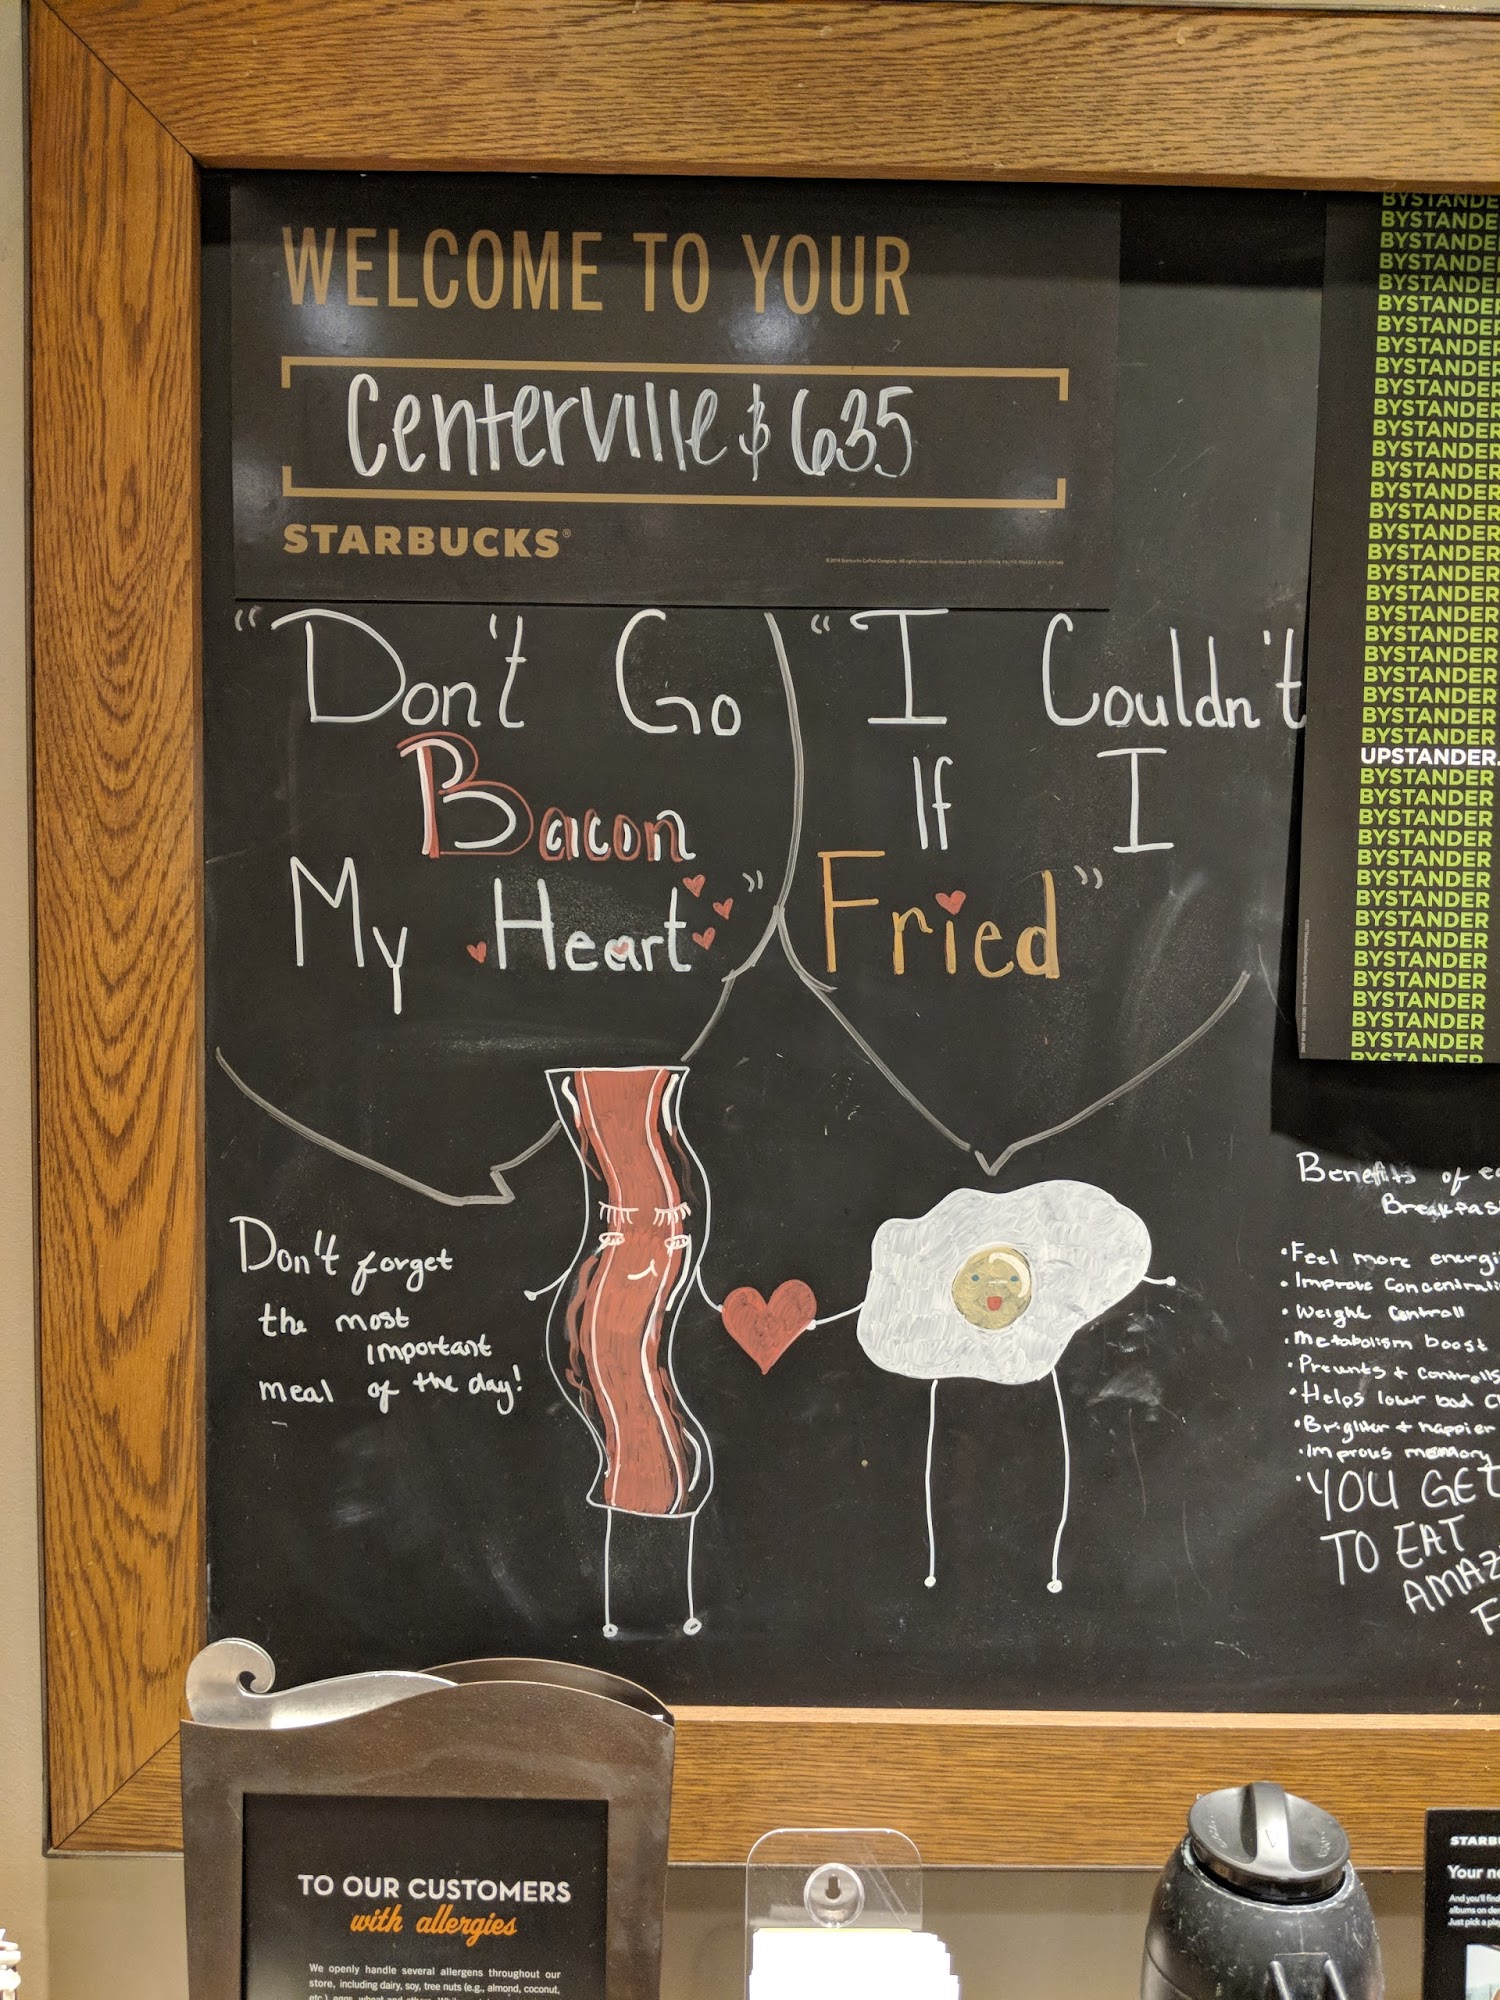 WELCOME TO YOUR
Centerville & 635
STARBUCKS®
"Don't Go
Bacon
My Heart"
"I Couldn't
If I
Fried"
Don't forget
the most
important
meal of the day!
BYSTANDE
BYSTANDE
BYSTANDE
BYSTANDE
BYSTANDE
BYSTANDER
BYSTANDER
BYSTANDER
BYSTANDER
BYSTANDER
BYSTANDER
BYSTANDER
BYSTANDER
BYSTANDER
BYSTANDER
BYSTANDER
BYSTANDER
BYSTANDER
BYSTANDER
BYSTANDER
BYSTANDER
BYSTANDER
BYSTANDER
BYSTANDER
BYSTANDER
BYSTANDER
BYSTANDER
UPSTANDER.
BYSTANDER
BYSTANDER
BYSTANDER
BYSTANDER
BYSTANDER
BYSTANDER
BYSTANDER
BYSTANDER
BYSTANDER
BYSTANDER
BYSTANDER
BYSTANDER
BYSTANDER
BYSTANDER
BYSTANDER
Benefits of ea
Breakfas
• Feel more energi
• Improve Concentrati
• Weight Controll
• Metabolism boost
• Prevents + controlls
• Helps lower bad C
• Brighter + happier
• Improves memory
• YOU GET
TO EAT
AMAZ
F
TO OUR CUSTOMERS
with allergies
We openly handle several allergens throughout our
store, including dairy, soy, tree nuts (e.g., almond, coconut,
etc.), eggs, wheat and others.
STARB
Your ne
And you'll find
albums on de
Just pick a pla